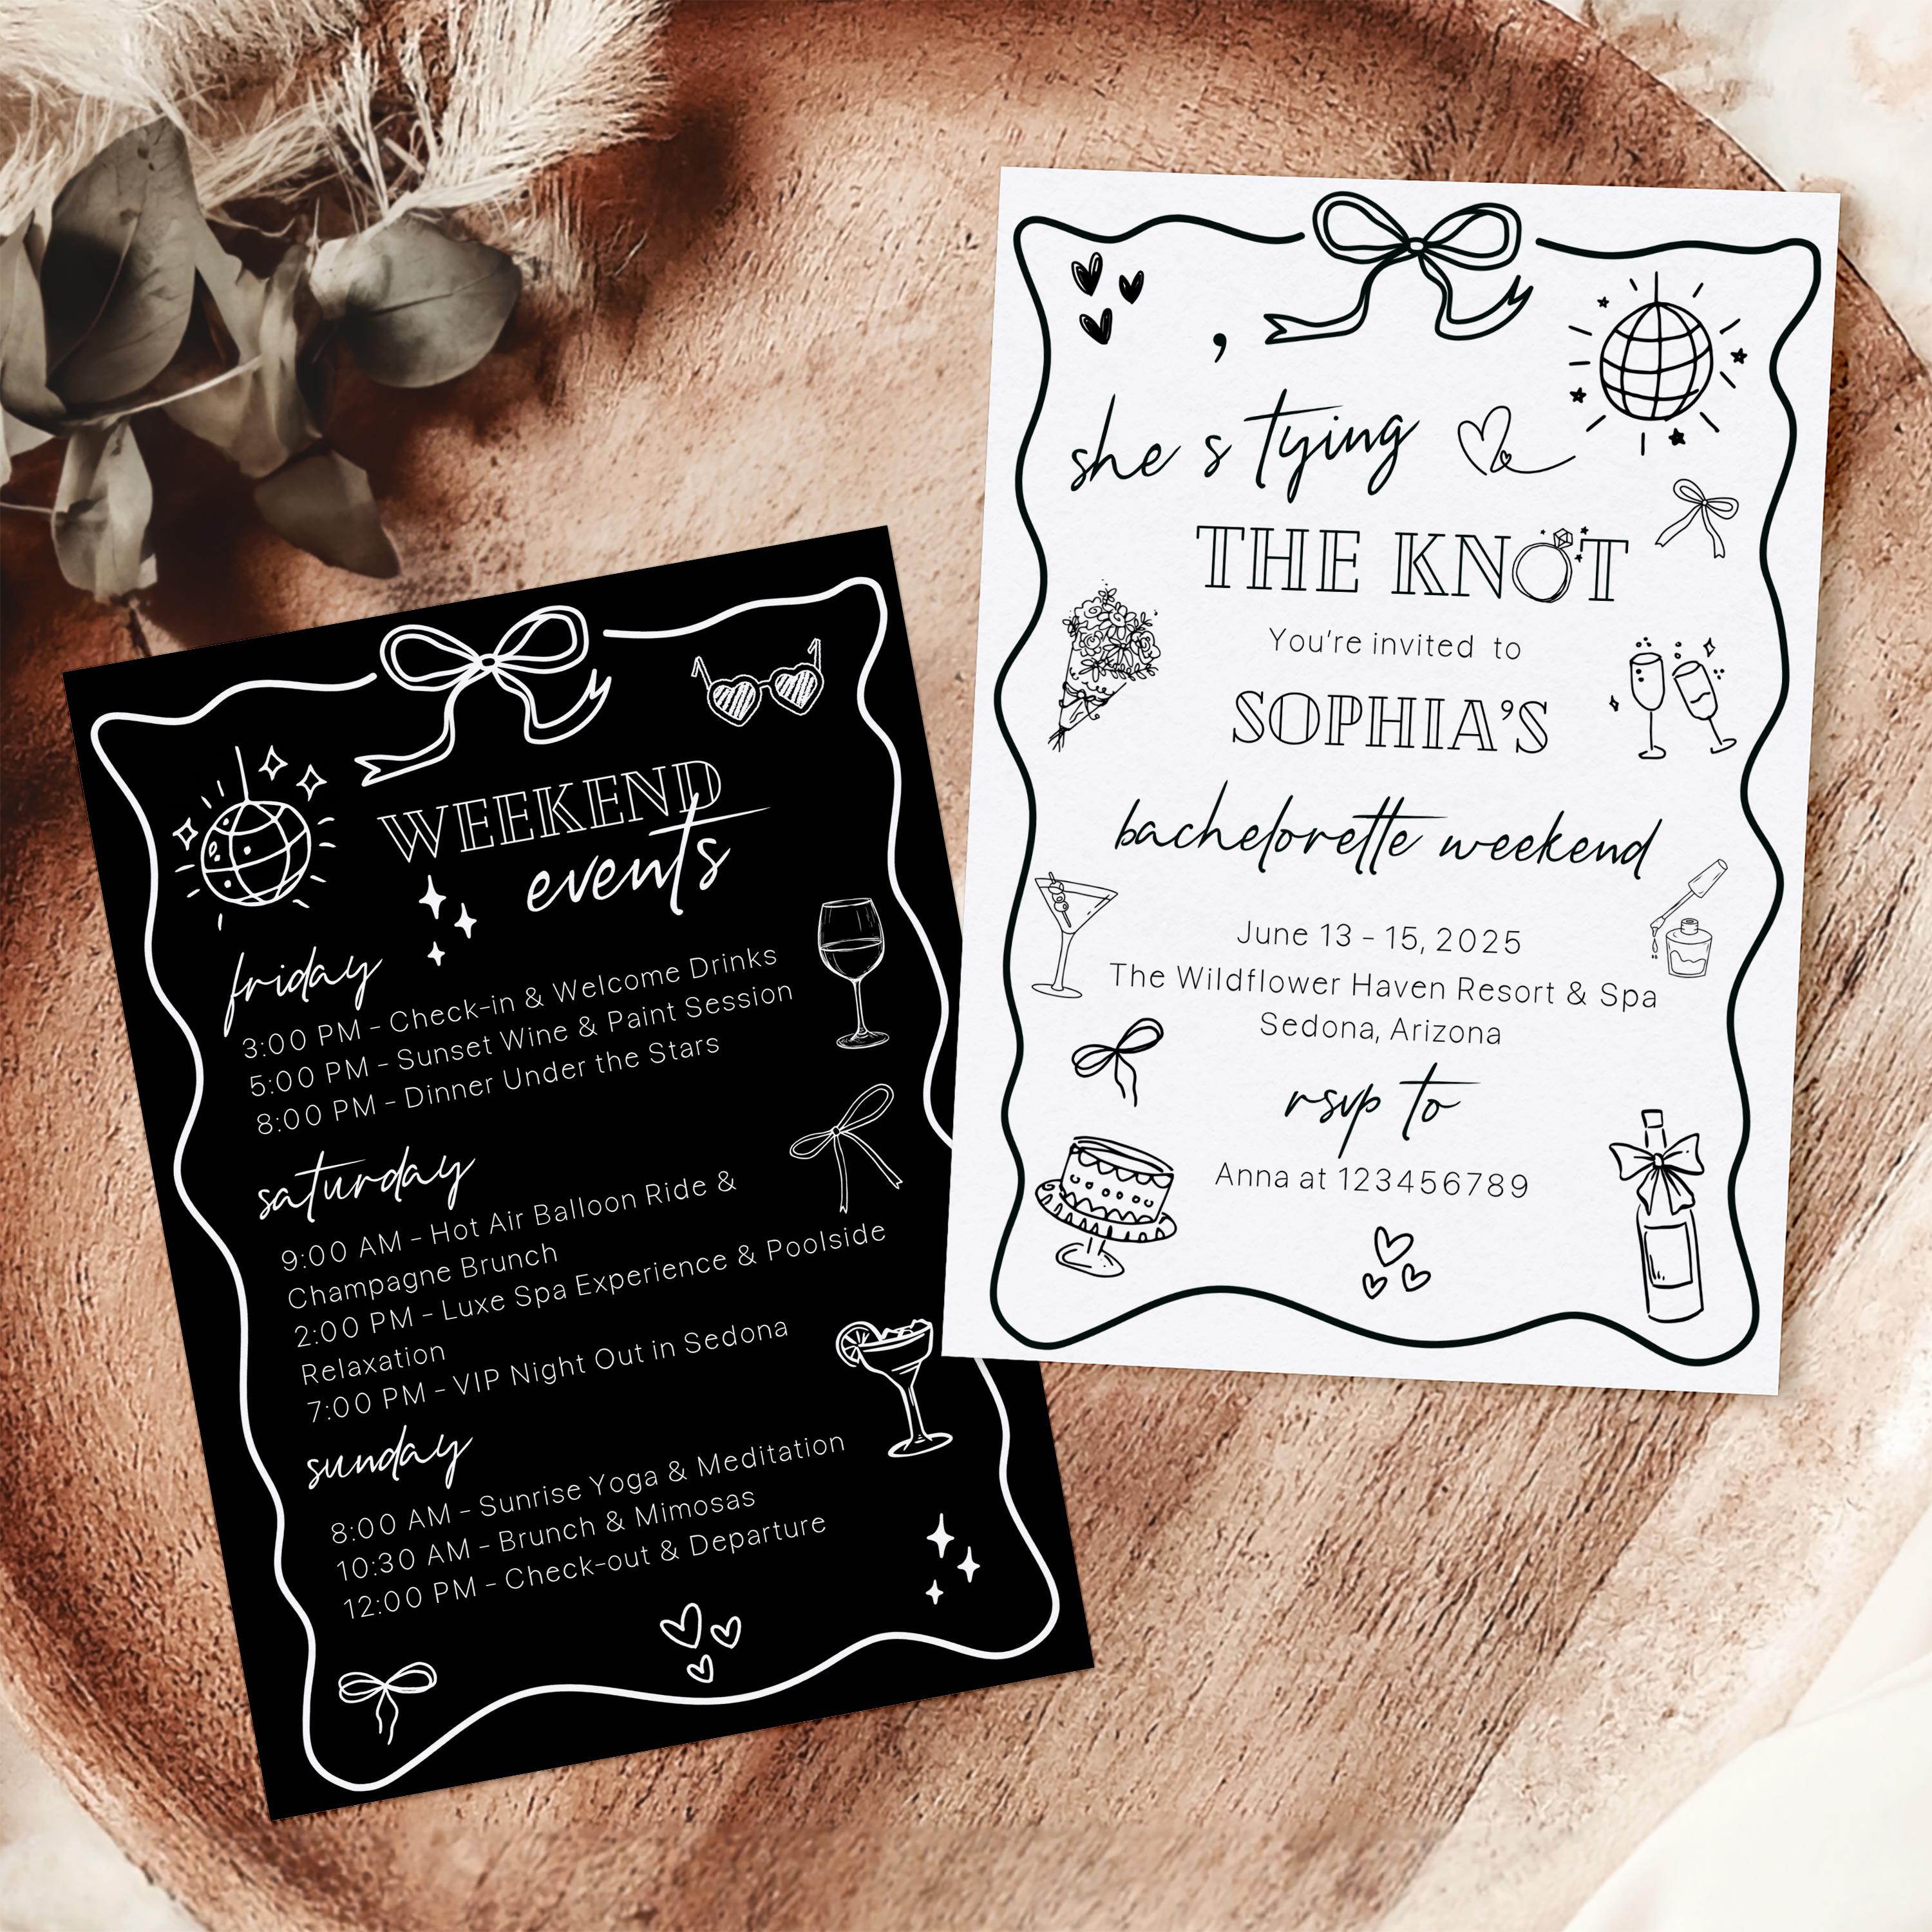 WEEKEND
events
friday
3:00 PM – Check-in & Welcome Drinks
5:00 PM – Sunset Wine & Paint Session
8:00 PM – Dinner Under the Stars
saturday
9:00 AM – Hot Air Balloon Ride &
Champagne Brunch
2:00 PM – Luxe Spa Experience & Poolside
Relaxation
7:00 PM – VIP Night Out in Sedona
sunday
8:00 AM – Sunrise Yoga & Meditation
10:30 AM – Brunch & Mimosas
12:00 PM – Check-out & Departure
,
she s tying
THE KNOT
You're invited to
SOPHIA'S
bachelorette weekend
June 13 - 15, 2025
The Wildflower Haven Resort & Spa
Sedona, Arizona
rsvp to
Anna at 123456789